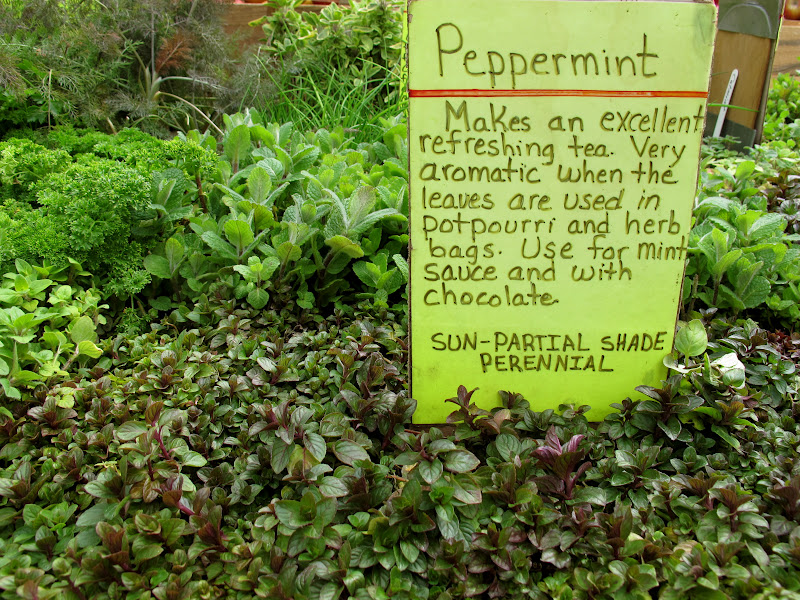 Peppermint
Makes an excellent
refreshing tea. Very
aromatic when the
leaves are used in
potpourri and herb
bags. Use for mint
sauce and with
chocolate.
SUN-PARTIAL SHADE
PERENNIAL